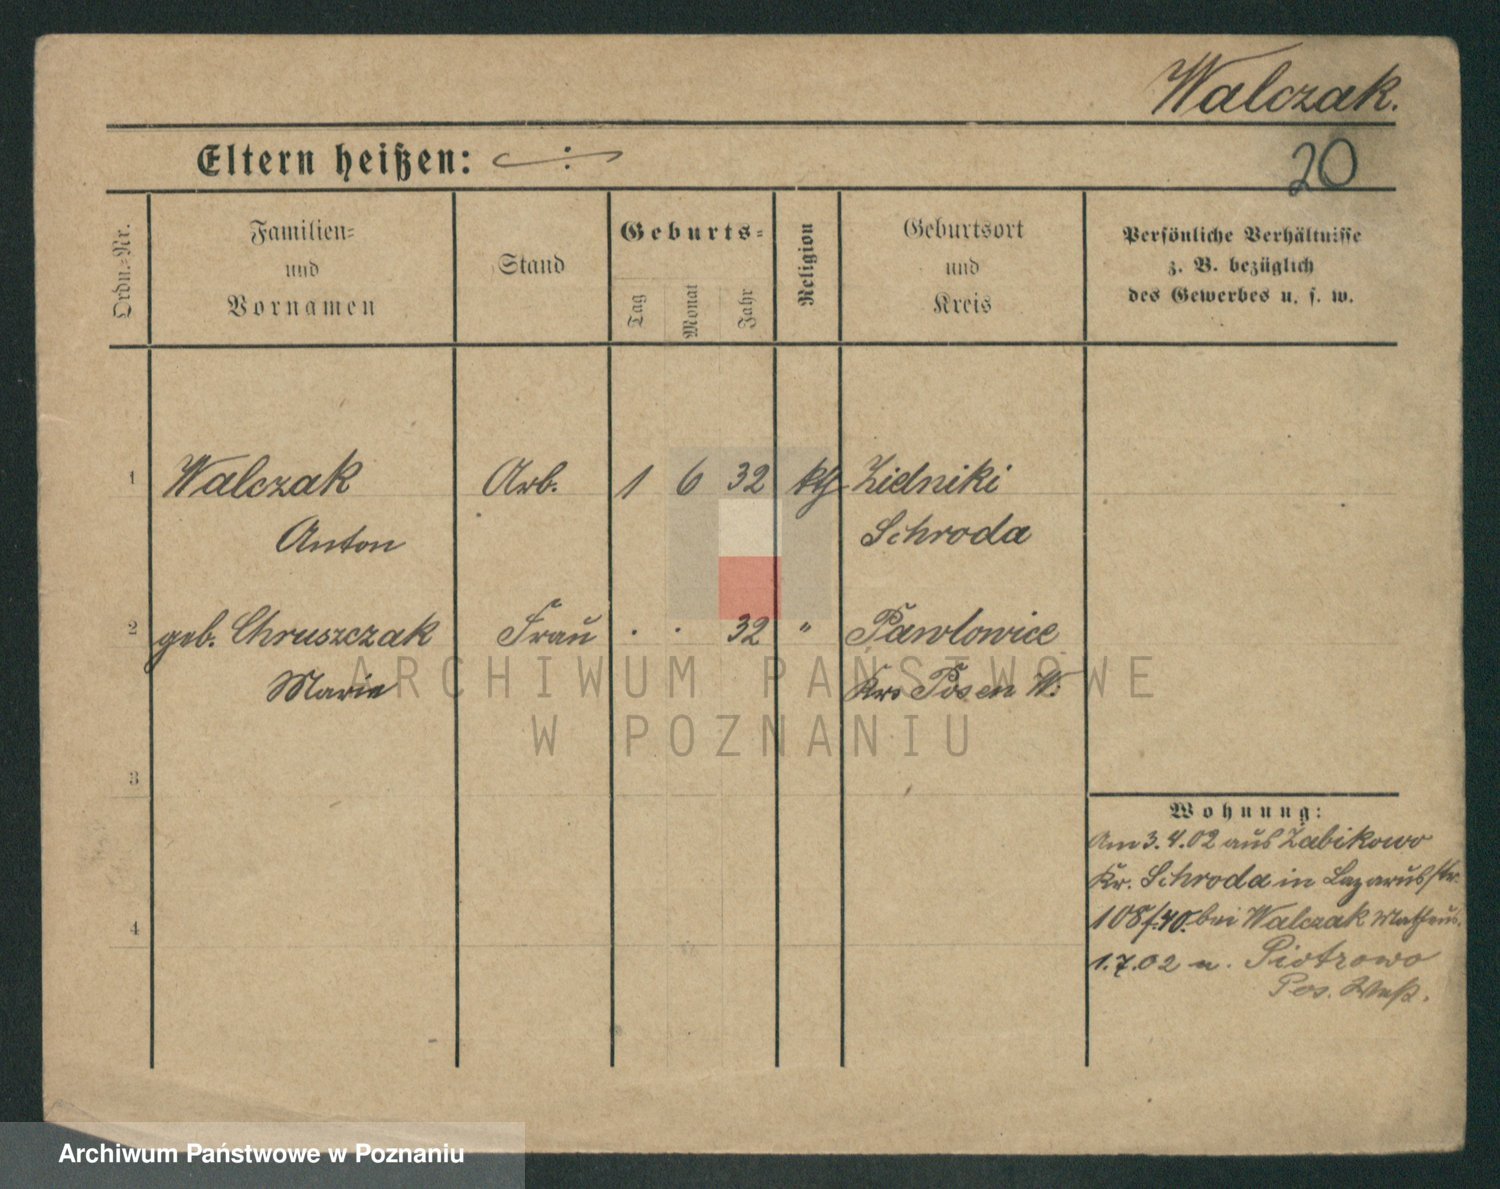 Walczak.
Eltern heißen:
20
Ordn.-Nr.
Familien-
und
Vornamen
Stand
Geburts-
Tag
Monat
Jahr
Religion
Geburtsort
und
Kreis
Persönliche Verhältnisse
z. B. bezüglich
des Gewerbes u. s. w.
1 Walczak Arb. 1 6 32 kth Zielniki
Anton Schroda
2 geb. Chruszczak Frau . . 32 " Pawlowice
Marie Krs Posen W.
ARCHIWUM PAŃSTWOWE
W POZNANIU
3
Wohnung:
Am 3.4.02 aus Zabikowo
Kr. Schroda in Lazarusstr.
108/40. bei Walczak
4
1.7.02 n. Piotrowo
Pos. West.
Archiwum Państwowe w Poznaniu